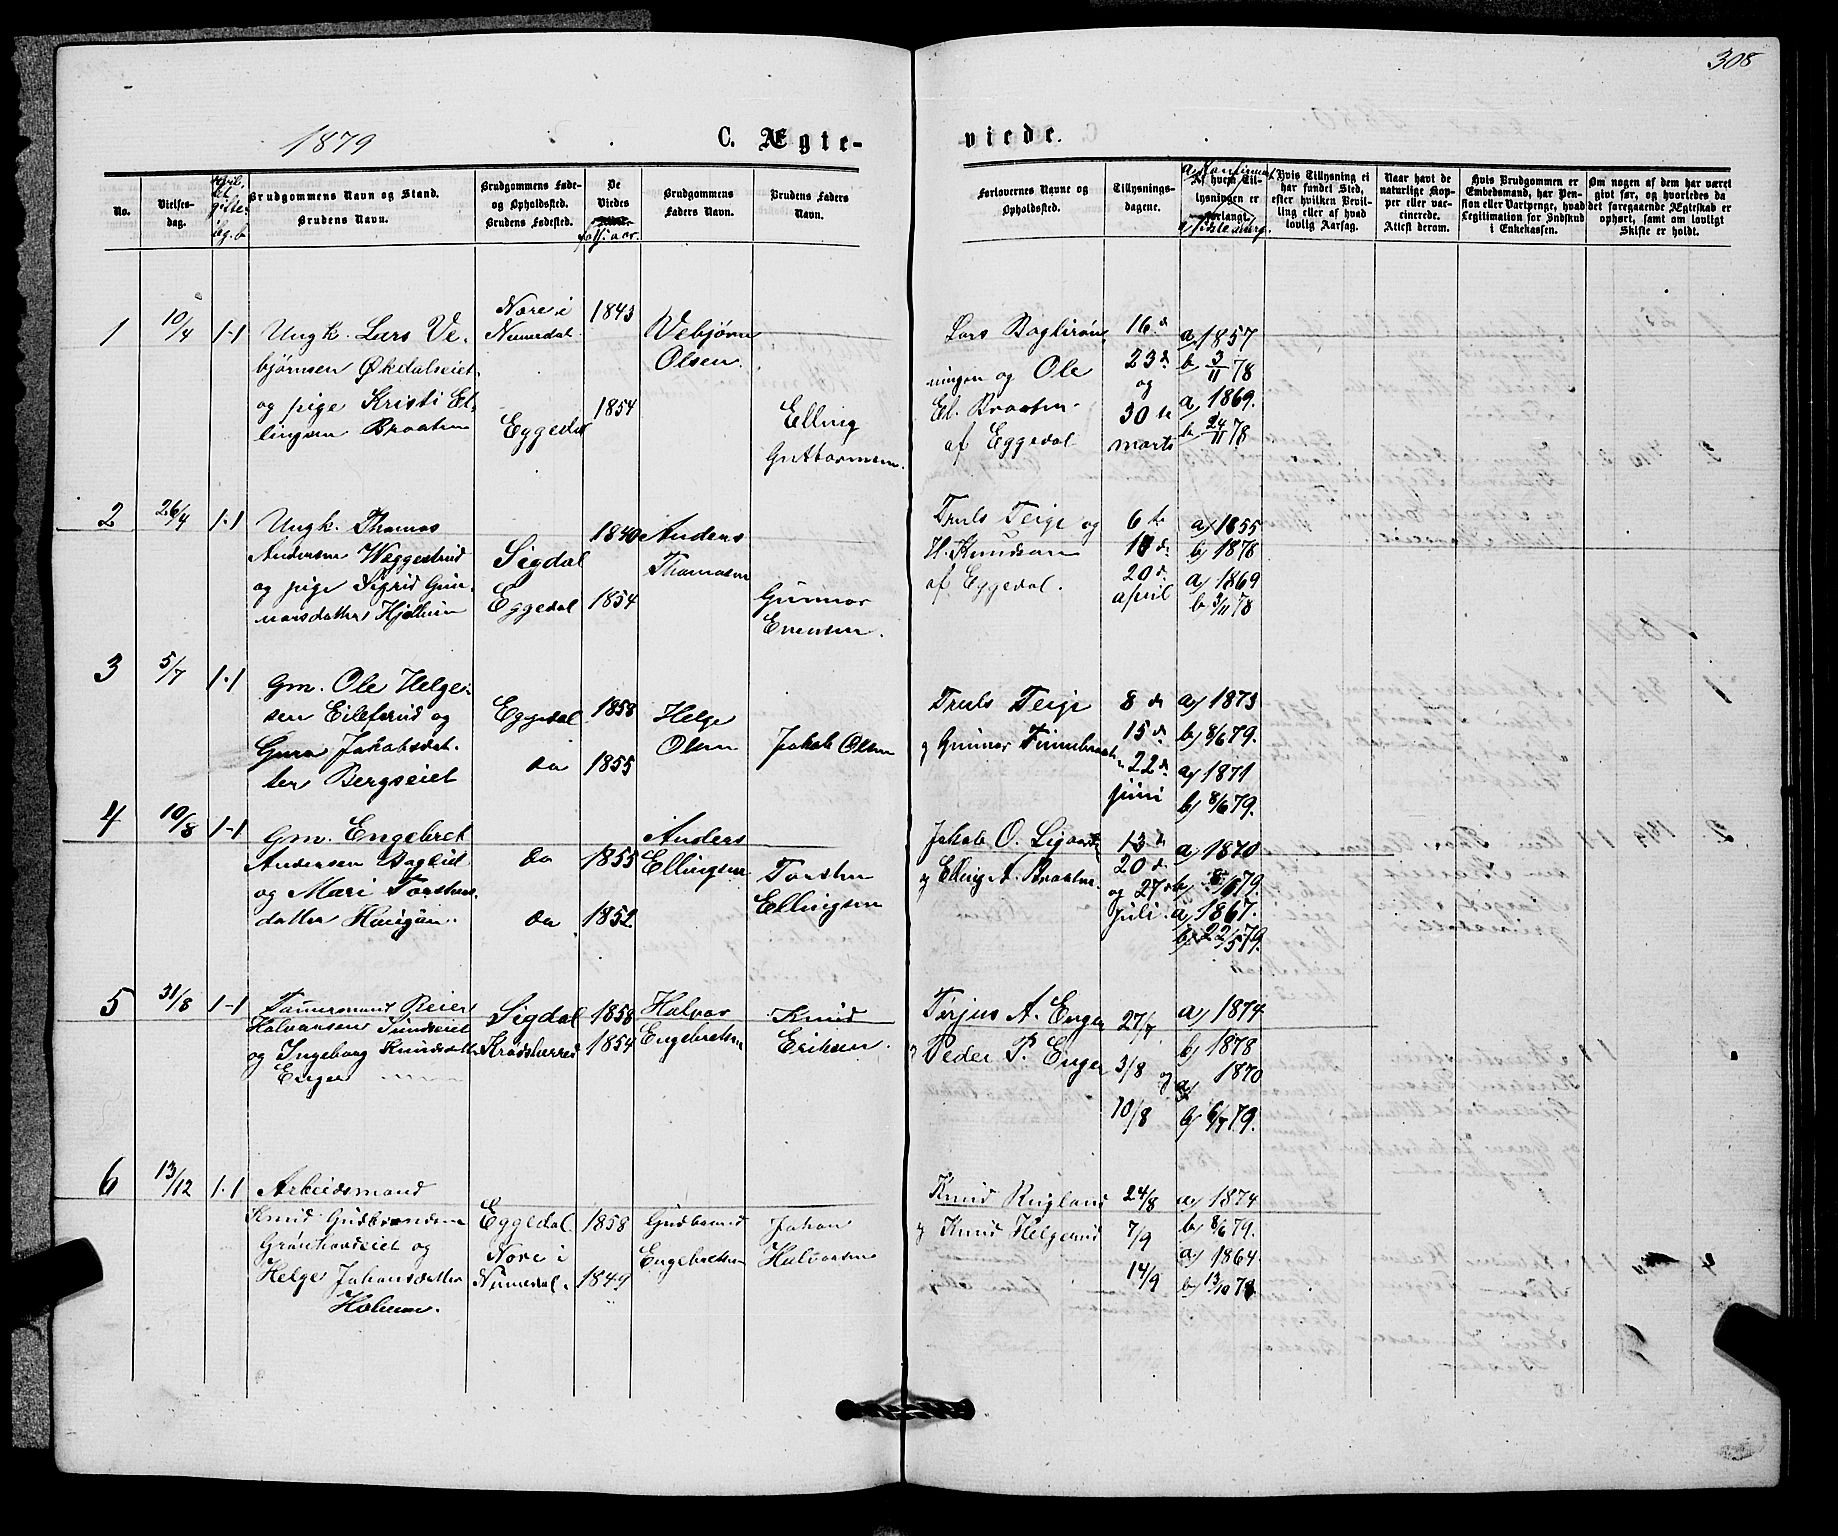 308
1879
C. Ægte-
viede.
No.
Vielses-
dag.
Brudgommens Navn og Stand.
Brudens Navn.
Brudgommens Føde-
og Opholdssted.
Brudens Fødested.
De
Viedes
Brudgommens
Faders Navn.
Brudens Faders
Navn.
Forlovernes Navne og
Opholdssted.
Tillysnings-
dagene.
hvem Til-
lysningen er
forlangt.
Hvis Tillysning ei
har fundet Sted,
efter hvilken Bevil-
ling eller af hvad
lovlig Aarsag.
Naar havt de
naturlige Kop-
per eller vac-
cinerede.
Attest derom.
Hvis Brudgommen er
Embedsmand, har Pen-
sion eller Vartpenge, hvad
Legitimation for Indskud
i Enkekassen.
Om nogen af dem har været
gift før, og hvorledes da
det foregaaende Ægteskab er
ophørt, samt om lovligt
Skifte er holdt.
1
10/4
1-1
Ungk. Lars Ve-
bjørnsen Økdalseiet
og pige Kristi El-
lingsen Braaten
Nore i
Numedal
Eggedal
1843
1854
Vebjørn
Olsen.
Elling
Guttormsen.
Lars
ningen og Ole
El. Braaten
af Eggedal
16 d
23 d
og
30 te
marts
a) 1857
b 3/11 78
a) 1869.
b 24/11 78
2
26/4
1-1
Ungk. Thomas
Andersen Waggestrud
og pige Sigrid Gun-
narsdatter
Sigdal
Eggedal
1840
1854
Anders
Thomasen
Gunnar
Evensen.
Truls Teige og
H. Knudsen
af Eggedal.
6 te
20 d.
april
a) 1855
b) 1878
a) 1869
b 3/11 78
3
5/7
1-1
Gm. Ole Helge-
sen Eileferud og
Guro Jakobsdat-
ter Bergseiet
Eggedal
do
1858
1855
Helge
Olsen
Jakob Olsen
Truls Teige
og Gunnar
8 de
15 d.
22 d.
juni
a) 1873
b) 8/6 79.
a) 1871
b) 8/6 79.
4
10/8
1-1
Gm. Engebret
Andersen
og Mari Torstens
datter Haugan.
do
do
1855
1852
Anders
Ellingsen
Torsten
Ellingsen
Jakob O.
og Elling A. Braaten.
13 d
20 d
og 27 d
juli.
a) 1870
a) 1867.
b) 22/5 79.
5
31/8
1-1
Tømmermand Peier
Halvorsen
og Ingeborg Knudsdatter
Enger
Sigdal
Krødsherred
1858
1854
Halvor
Engebretsen
Knud
Eriksen.
Tirjus A. Enger
og Peder P. Enger
27/7
3/8 og
10/8
a) 1874.
b) 1878
a) 1870
b) 6/7 79.
6
13/12
1-1
Arbeidsmand
Knud Gudbrandsen
og
Helge Johansdatter
Eggedal.
Nore i
Numedal.
1858
1849
Gudbrand
Engebretsen
Johan
Halvorsen
Knud Rugland
og Knud Helgerud
24/8
7/9
14/9
a) 1874
b 8/6 79.
a) 1864